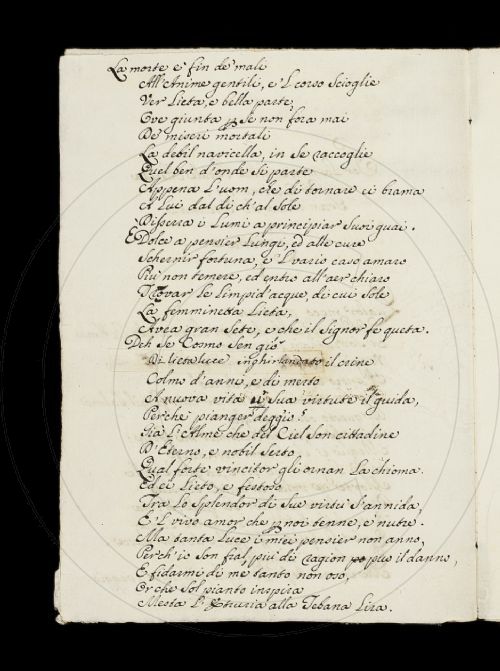 La morte e' fin de' mali
All'Anime gentili, e 'l corso Scioglie
Ver Lieta, e bella parte,
Ove giunta p Se non fora mai
De' miseri mortali
La debil navicella, in Se raccoglie
Quel ben d'onde Si parte
Appena L'uom, che di tornare ei brama
A Lui dal dì ch'al Sole
Disserra i Lumi a principiar Suoi guai.
E Dolce a pensier Lungi, ed alle cure
Schernir fortuna, e 'L vario caso amaro
Più non temere, ed entro all'aer chiaro
Trovar Le Limpid'acque, di cui Sole
La femminetta Lieta,
Avea gran Sete, e che il Signor fe queta.
Deh Se Cosmo Sen gio
Di lieta luce inghirlandato il crine
Colmo d'anno, e di merto
A nuova vita Sua virtute il guida,
Perche pianger deggio?
Già L'Alme che del Ciel Son cittadine
D'Eterno, e nobil Serto
Qual forte vincitor gli ornan La chioma.
Ed ei Lieto, e festoso
Tra Lo Splendor di Sue virtù S'annida,
E L vivo amor che p noi tenne, e' nutre.
Ma tanta Luce i miei pensier non anno,
Perch'io Son fral, più di ragion può il danno,
E fidarmi di me tanto non oso,
Or che Sol pianto inspira
Mesta L'Etruria alla Tebana Lira.